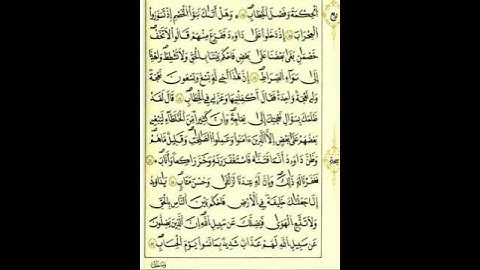 ربع
ٱلْحِكْمَةَ وَفَصْلَ ٱلْخِطَابِ ۝٢٠ وَهَلْ أَتَىٰكَ نَبَؤُا۟ ٱلْخَصْمِ إِذْ تَسَوَّرُوا۟
ٱلْمِحْرَابَ ۝٢١ إِذْ دَخَلُوا۟ عَلَىٰ دَاوُۥدَ فَفَزِعَ مِنْهُمْ قَالُوا۟ لَا تَخَفْ
خَصْمَانِ بَغَىٰ بَعْضُنَا عَلَىٰ بَعْضٍ فَٱحْكُم بَيْنَنَا بِٱلْحَقِّ وَلَا تُشْطِطْ وَٱهْدِنَآ
إِلَىٰ سَوَآءِ ٱلصِّرَٰطِ ۝٢٢ إِنَّ هَٰذَآ أَخِى لَهُۥ تِسْعٌ وَتِسْعُونَ نَعْجَةً
وَلِىَ نَعْجَةٌ وَٰحِدَةٌ فَقَالَ أَكْفِلْنِيهَا وَعَزَّنِى فِى ٱلْخِطَابِ ۝٢٣ قَالَ لَقَدْ
ظَلَمَكَ بِسُؤَالِ نَعْجَتِكَ إِلَىٰ نِعَاجِهِۦ وَإِنَّ كَثِيرًا مِّنَ ٱلْخُلَطَآءِ لَيَبْغِى
بَعْضُهُمْ عَلَىٰ بَعْضٍ إِلَّا ٱلَّذِينَ ءَامَنُوا۟ وَعَمِلُوا۟ ٱلصَّٰلِحَٰتِ وَقَلِيلٌ مَّا هُمْ
وَظَنَّ دَاوُۥدُ أَنَّمَا فَتَنَّٰهُ فَٱسْتَغْفَرَ رَبَّهُۥ وَخَرَّ رَاكِعًا وَأَنَابَ ۩ ۝٢٤
سجدة
فَغَفَرْنَا لَهُۥ ذَٰلِكَ وَإِنَّ لَهُۥ عِندَنَا لَزُلْفَىٰ وَحُسْنَ مَـَٔابٍ ۝٢٥ يَٰدَاوُۥدُ
إِنَّا جَعَلْنَٰكَ خَلِيفَةً فِى ٱلْأَرْضِ فَٱحْكُم بَيْنَ ٱلنَّاسِ بِٱلْحَقِّ
وَلَا تَتَّبِعِ ٱلْهَوَىٰ فَيُضِلَّكَ عَن سَبِيلِ ٱللَّهِ إِنَّ ٱلَّذِينَ يَضِلُّونَ
عَن سَبِيلِ ٱللَّهِ لَهُمْ عَذَابٌ شَدِيدٌۢ بِمَا نَسُوا۟ يَوْمَ ٱلْحِسَابِ ۝٢٦